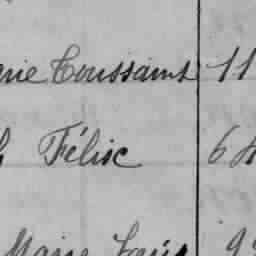 rie Toussaint 11
h Félix 64
Marie Louis 9